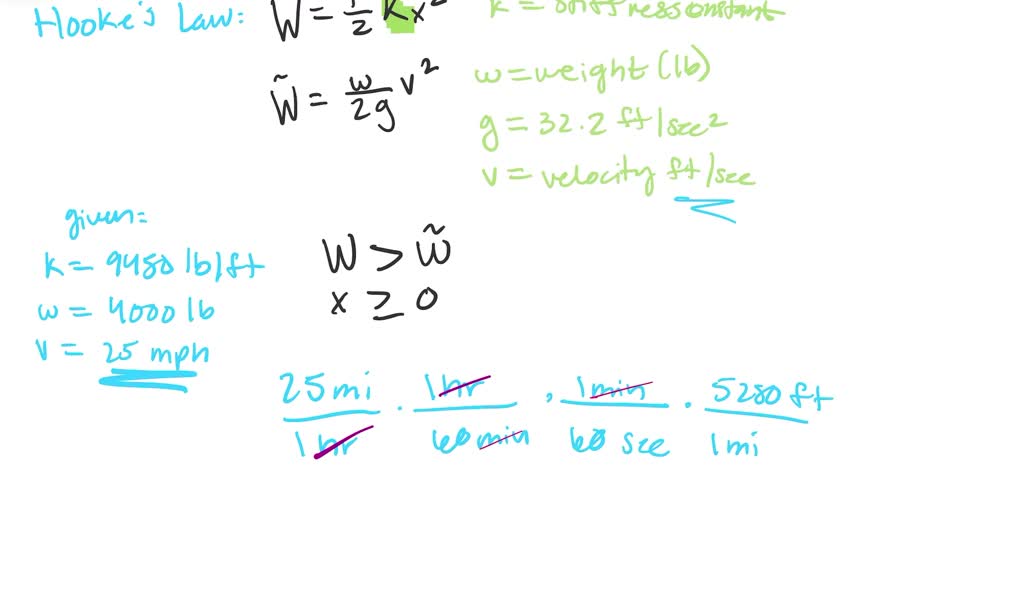 Hooke's Law: W = 1/2 Kx²
k = stiffness constant
W̃ = w/2g v²
w = weight (lb)
g = 32.2 ft/sec²
v = velocity ft/sec
given:
k = 9450 lb/ft
w = 4000 lb
v = 25 mph
W > W̃
x ≥ 0
25 mi / 1 hr · 1 hr / 60 min · 1 min / 60 sec · 5280 ft / 1 mi